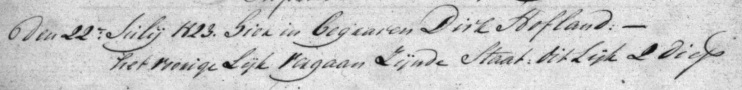 6 den 22n Julij 1823. hier in begraven Dirk Hofland: —
het vorige Lijk vergaan Zijnde Staat: dit Lijk 2 diep